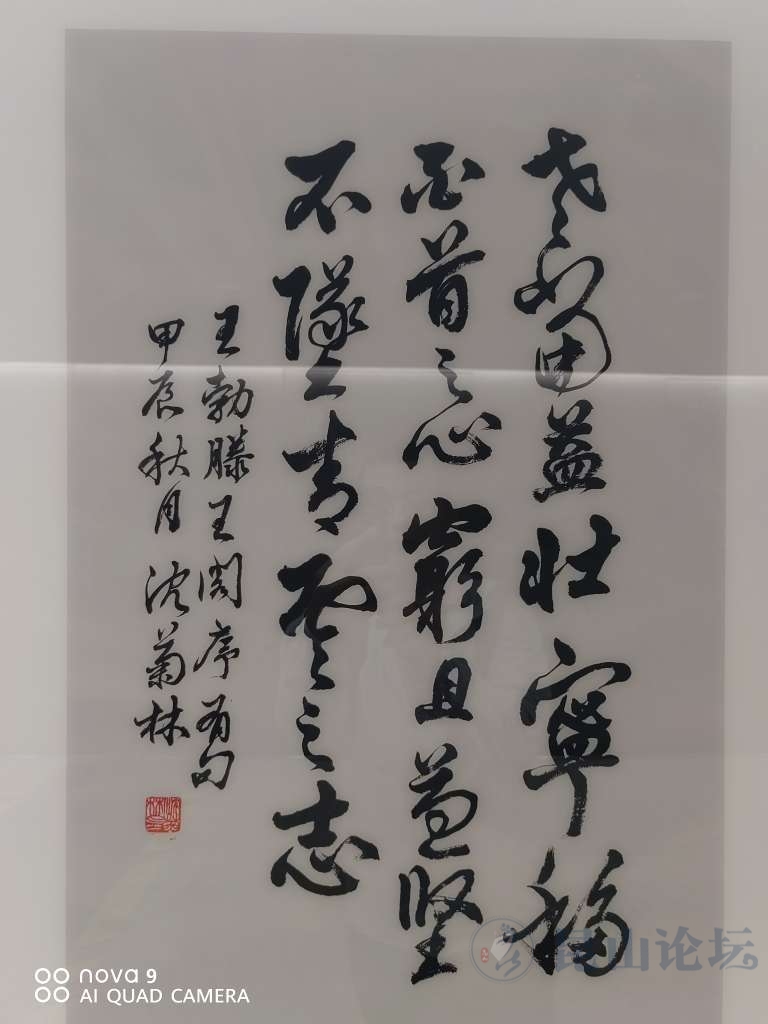 老當益壮寧移
白首之心窮且益坚
不墜青雲之志
王勃滕王阁序有句
甲辰秋月沈菊林
昆山论坛
nova 9
AI QUAD CAMERA